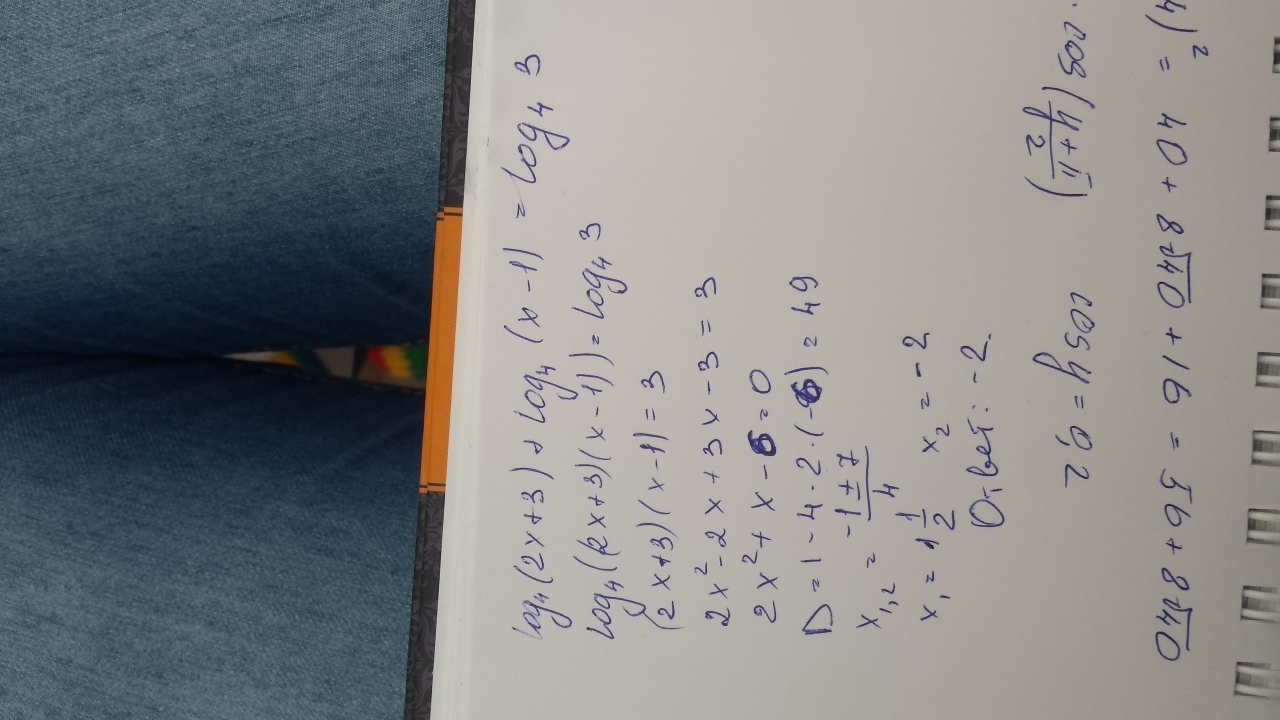 log₄(2x+3)+log₄(x-1)=log₄3
log₄((2x+3)(x-1))=log₄3
(2x+3)(x-1)=3
2x²-2x+3x-3=3
2x²+x-6=0
D=1-4·2·(-6)=49
x₁,₂ = (-1±7)/4
x₁ = 1 1/2 x₂ = -2
Ответ: -2.
cos y = 0,2 cos(π/2 + y)
4)² = 40+8√40+16 = 56+8√40